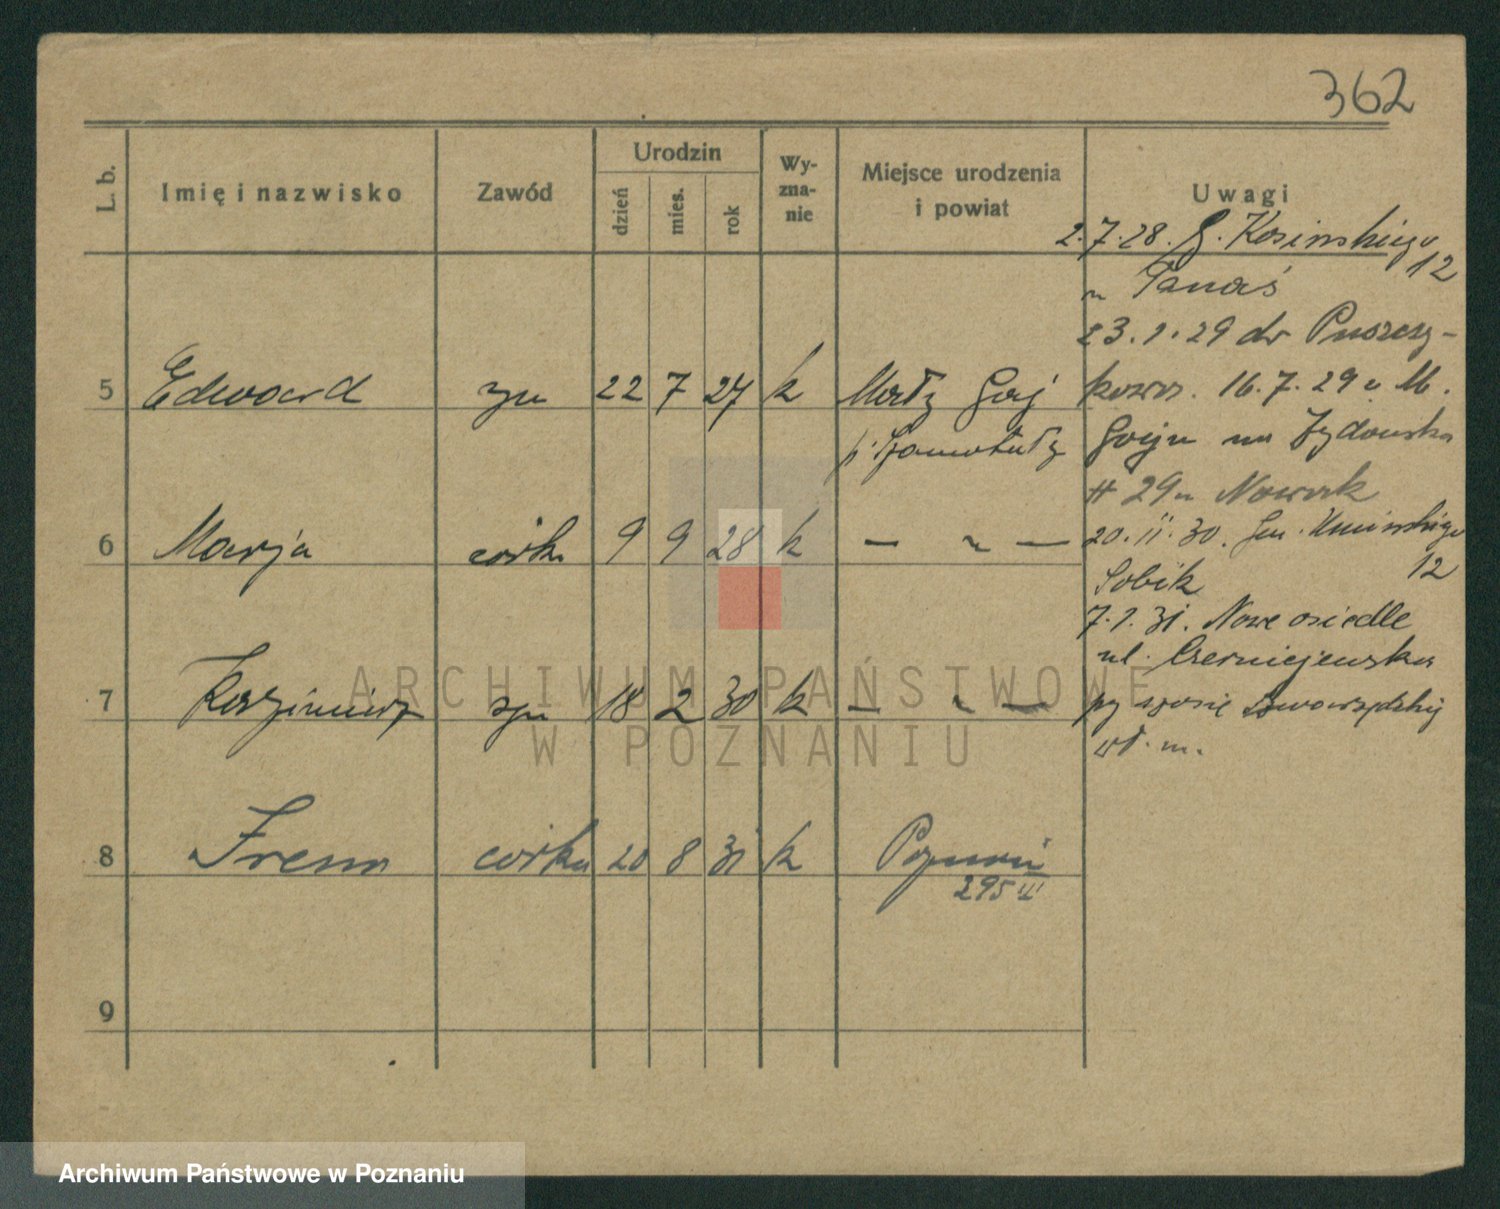 362
L. b.
Imię i nazwisko
Zawód
Urodzin
dzień
mies.
rok
Wy-
zna-
nie
Miejsce urodzenia
i powiat
Uwagi
2.7.28. G. Kosińskiego
12
u Tanaś
23.1.29 do Puszczy-
5 Edward syn 22 7 27 k Mały Gaj
p. Szamotuły
kowo. 16.7.29 u M.
Gaju na Żydowska
29 u Nowak
6 Marja córka 9 9 28 k — " —
20.11.30. Gen. Umińskiego
12
Sobik
7.1.31. Nowe osiedle
ul. Czerniejewska
7 Kazimierz syn 18 2 30 k — " —
py szosie
wł. m.
8 Irena córka 20 8 31 k Poznań
295 III
9
ARCHIWUM PAŃSTWOWE
W POZNANIU
Archiwum Państwowe w Poznaniu